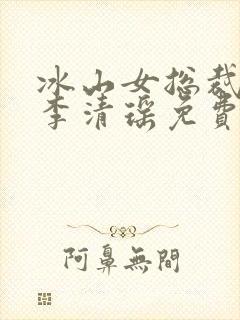 冰山女总裁
李清瑶免費
阿鼻無間